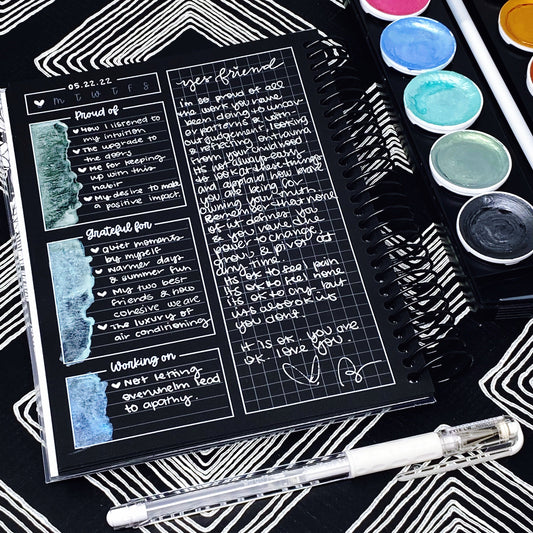 05.22.22
M T W T F S
Proud of
How I listened to
my intuition
The upgrade to
the doors
Me for keeping
up with this
habit
My desire to make
a positive impact.
Grateful for
Quiet moments
by myself
Warmer days
& summer fun
My two best
friends & how
cohesive we are
The luxury of
air conditioning
Working on
Not letting
overwhelm lead
to apathy.
yes friend
I'm so proud of all
the work you have
been doing to uncov-
er patterns & with-
out judgement, looking
& reflecting on trauma
from your childhood
It's not always easy
to look at these things
and applaud how brave
you are being for
owning your truth.
Remember that none
of it defines you
& you have the
power to change,
grow & pivot at
any time.
Its ok to feel pain
Its ok to feel none
Its ok to cry but
its also ok if
you dont.
It is ok. you are
ok. love you.